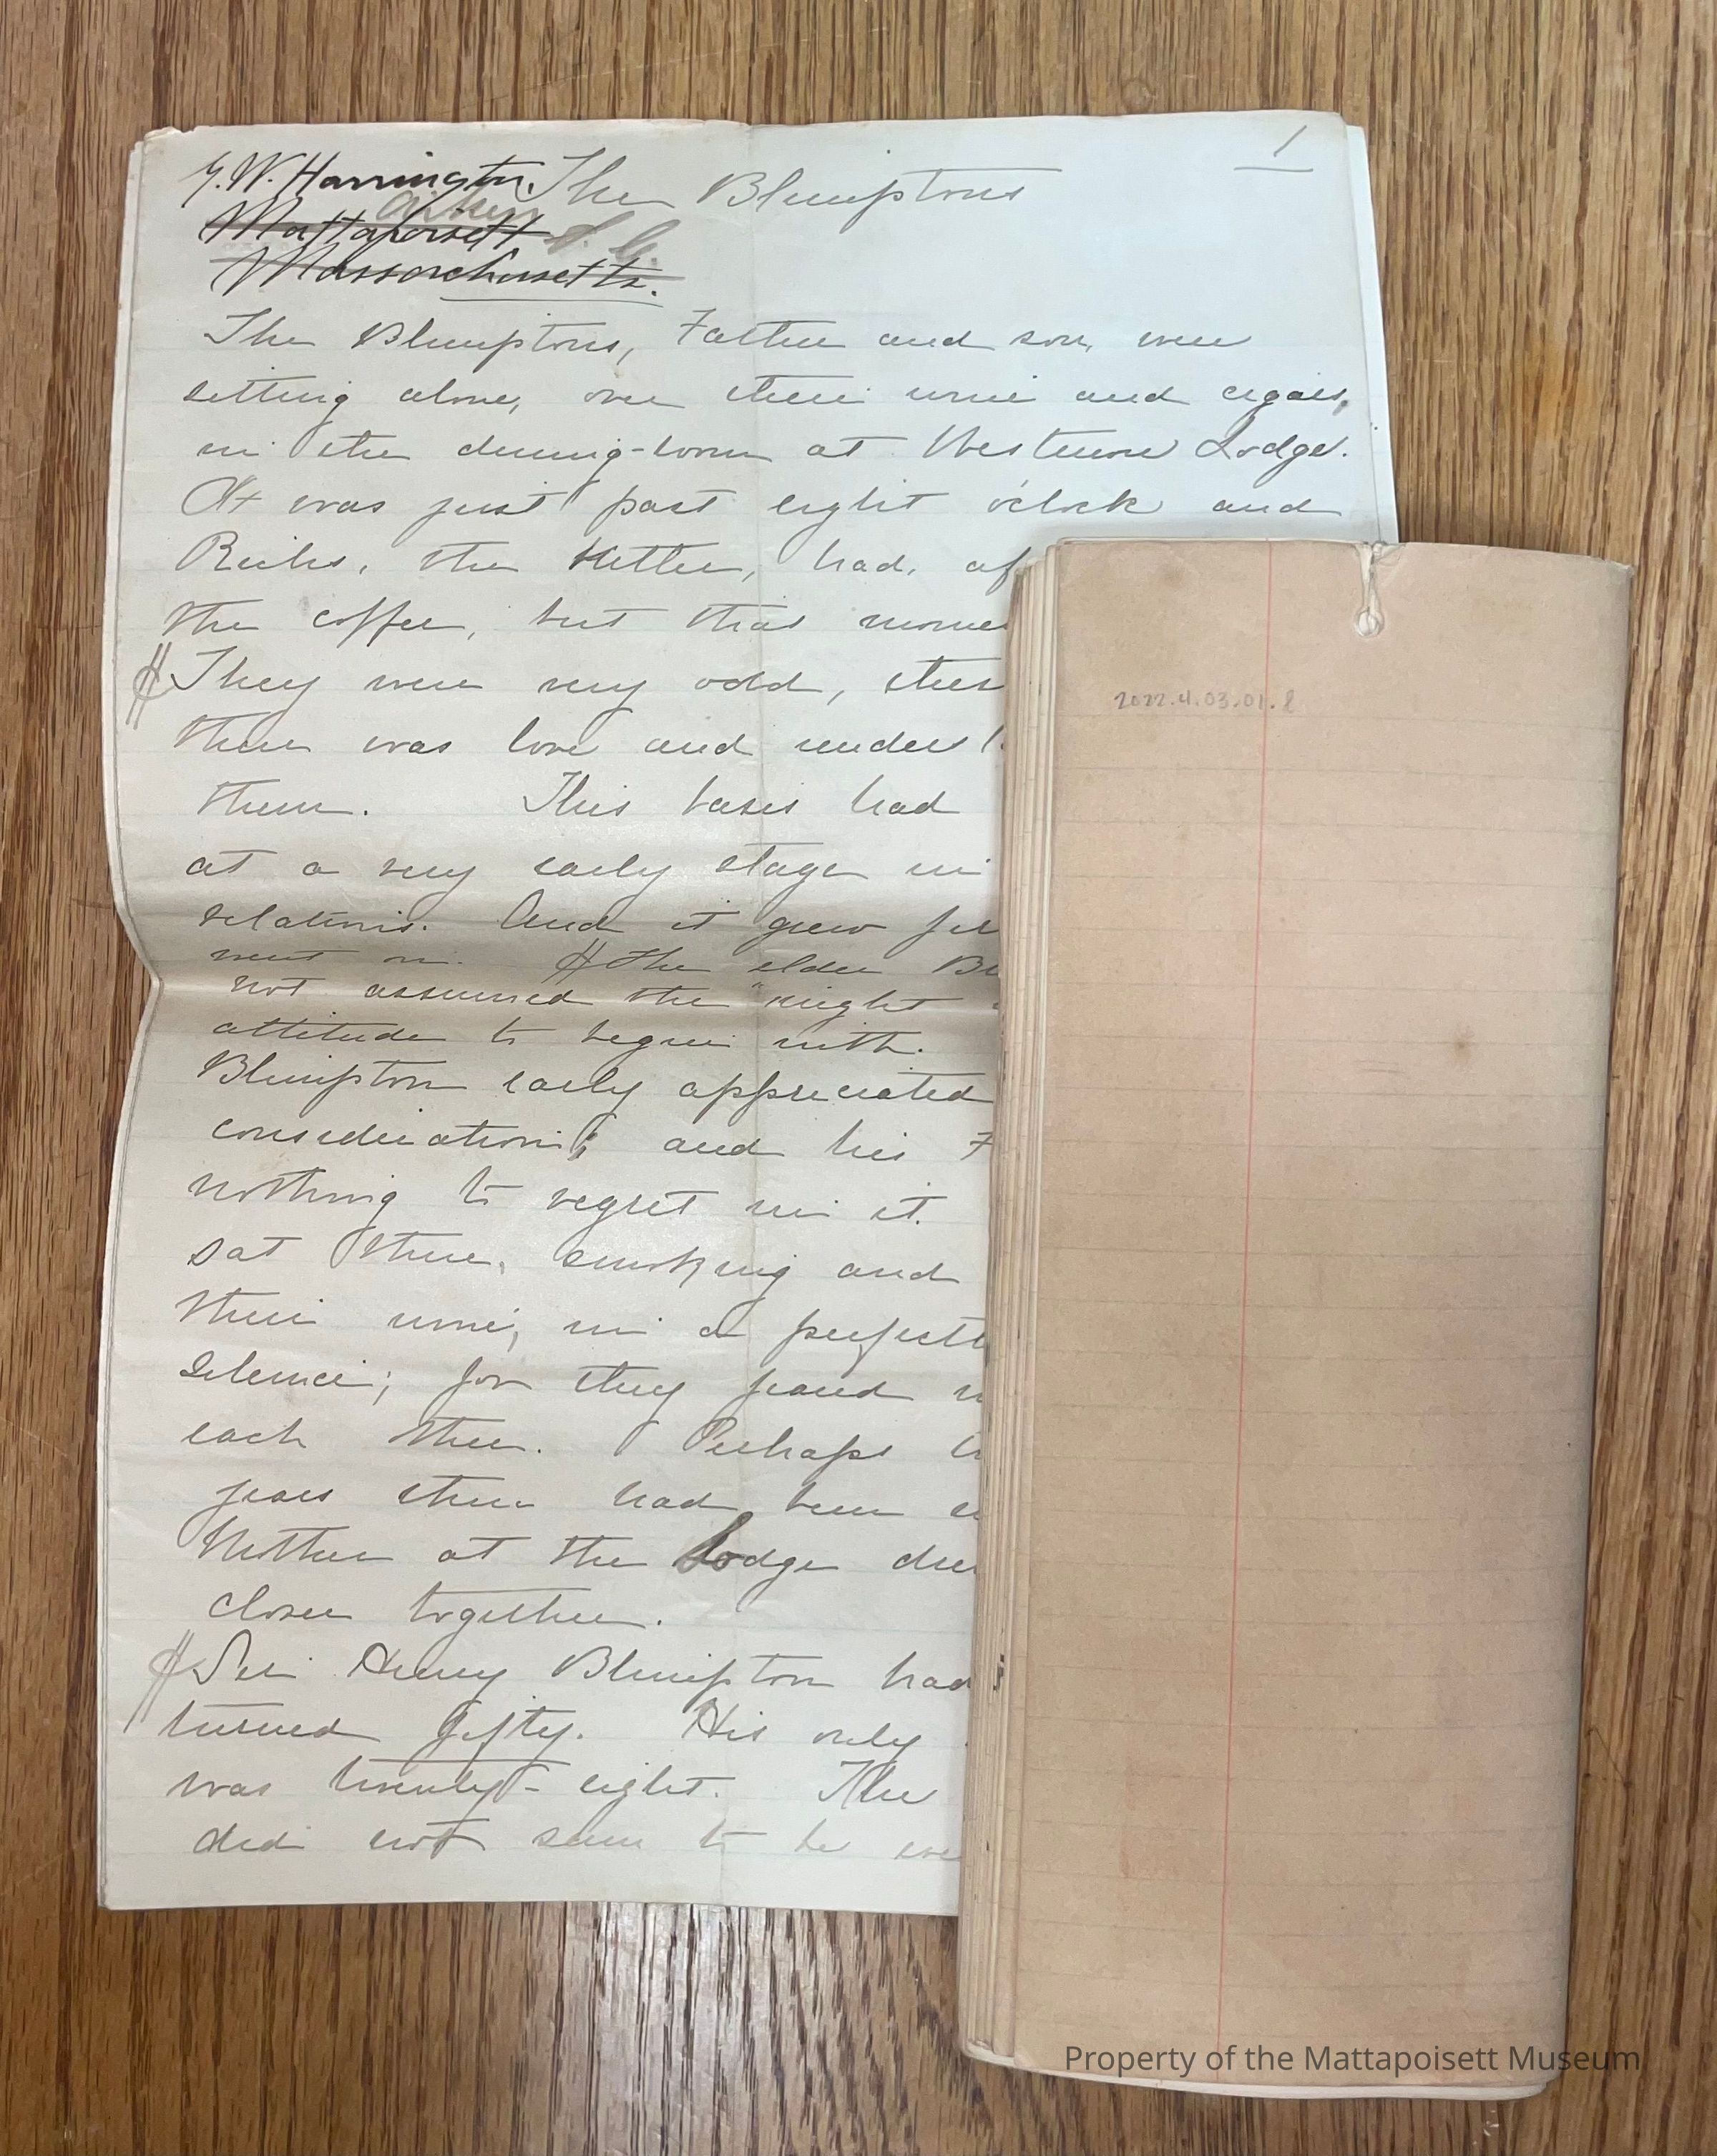 1
G. W. Harrington. The Blimptons
Mattapoisett Aiken S. C.
Massachusetts.
The Blimptons, Father and son, were
sitting alone, over their wine and cigars,
in the dining-room at Westmore Lodge.
It was just past eight o'clock and
the Butler, had, af
the coffee, but that momen
They were very odd, these
there was love and under
them. This basis had
at a very early stage in
relations. And it grew
went on. The elder Bl
not assumed the "might
attitude to begin with.
Blimpton early appreciated
consideration; and his F
nothing to regret in it.
sat there, smoking and
their wine, in a perfect
silence; for they found
each other. Perhaps
years there had been
Mother at the Lodge drew
closer together.
Sir Henry Blimpton had
turned fifty. His only
was twenty-eight. The
did not seem to be
2022.4.03.01.8
Property of the Mattapoisett Museum